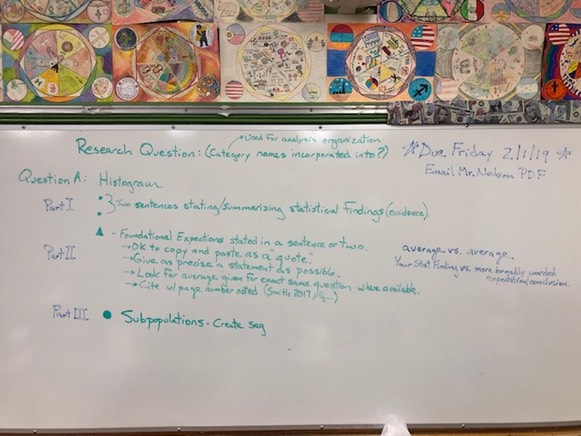 Used for analysis organization
Research Question: (Category names incorporated into?)
Due Friday 2/1/19
Email Mr. Nielsen PDF
Question A: Histogram
Part I. Two sentences stating/summarizing statistical findings (evidence).
- Foundational Expections stated in a sentence or two.
Part II
→ OK to copy and paste as a "quote."
→ Give as precise a statement as possible.
→ Look for average given for exact same question where available.
→ Cite w/ page number noted (Smith 2017,
average vs. average.
Your Stat Finding vs. more broadly worded
expectation/conclusion.
Part III. • Subpopulations - Create seg